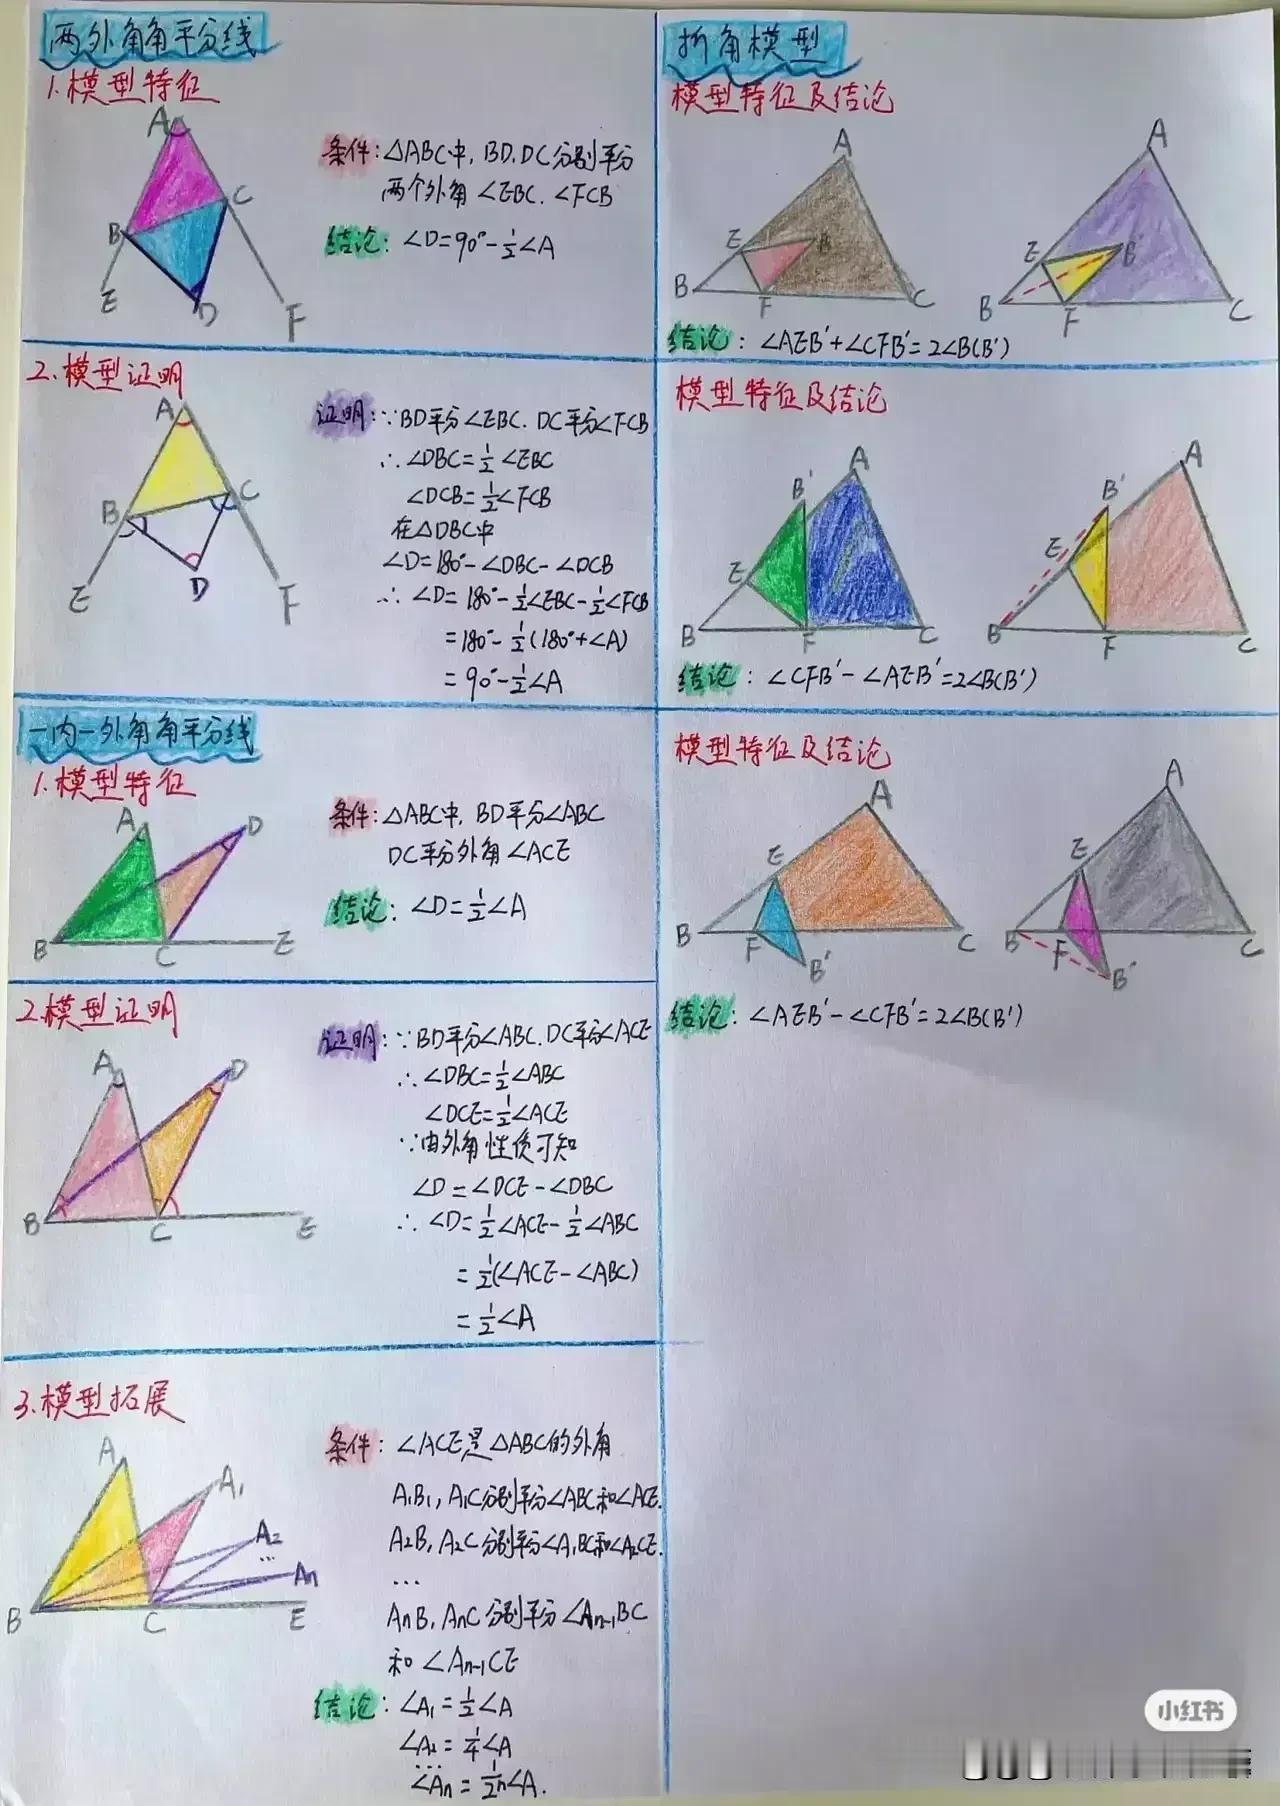 两外角角平分线
1.模型特征
A
B
C
E
D
F
条件:△ABC中,BD.DC分别平分
两个外角∠EBC.∠FCB
结论:∠D=90°-½∠A
2.模型证明
A
B
C
E
D
F
证明:∵BD平分∠EBC.DC平分∠FCB
∴∠DBC=½∠EBC
∠DCB=½∠FCB
在△DBC中
∠D=180°-∠DBC-∠DCB
∴∠D=180°-½∠EBC-½∠FCB
=180°-½(180°+∠A)
=90°-½∠A
一内一外角角平分线
1.模型特征
A
D
B
C
E
条件:△ABC中,BD平分∠ABC
DC平分外角∠ACE
结论:∠D=½∠A
2.模型证明
A
D
B
C
E
证明:∵BD平分∠ABC.DC平分∠ACE
∴∠DBC=½∠ABC
∠DCE=½∠ACE
∵由外角性质可知
∠D=∠DCE-∠DBC
∴∠D=½∠ACE-½∠ABC
=½(∠ACE-∠ABC)
=½∠A
3.模型拓展
A
A₁
A₂
...
An
B
C
E
条件:∠ACE是△ABC的外角
A₁B₁,A₁C分别平分∠ABC和∠ACE.
A₂B,A₂C分别平分∠A₁BC和∠A₂CE.
...
AnB,AnC分别平分∠An-1BC
和∠An-1CE
结论:∠A₁=½∠A
∠A₂=¼∠A
...
∠An=1/2ⁿ∠A.
折角模型
模型特征及结论
A
E
B'
B
F
C
A
E
B'
B
F
C
结论:∠AEB'+∠CFB'=2∠B(B')
模型特征及结论
A
B'
E
B
F
C
A
B'
E
B
F
C
结论:∠CFB'-∠AEB'=2∠B(B')
模型特征及结论
A
E
B
F
C
B'
A
E
B
F
C
B'
结论:∠AEB'-∠CFB'=2∠B(B')
小红书